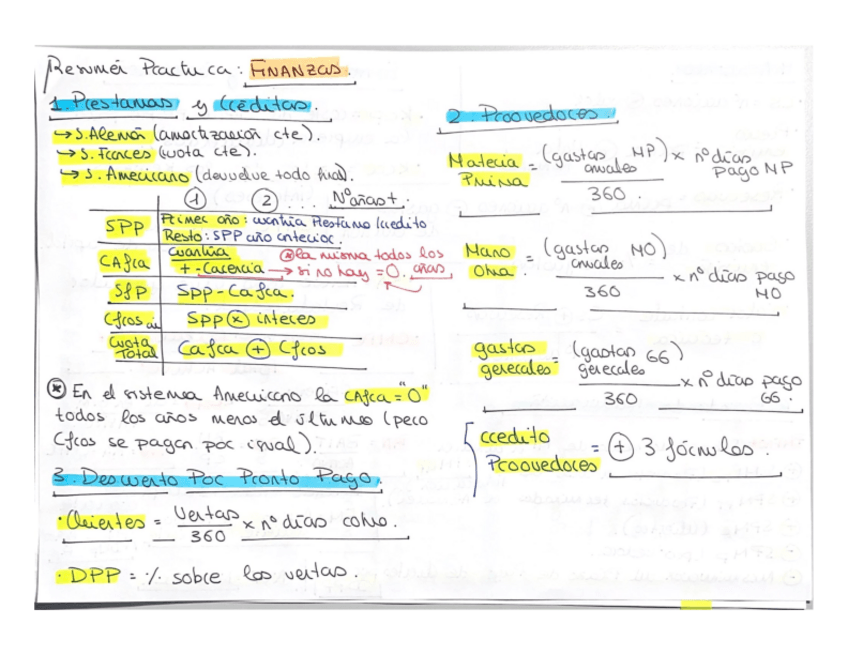 Resumen Practica: FINANZAS.
1. Prestamos y Creditos.
→ S. Alemán (amortización cte).
→ S. Frances (cuota cte).
→ S. Americano (devuelve todo final).
① ② ... Nº años +
SPP Primer año: cuantía Prestamo/credito
Resto: SPP año anterior.
CAfra cuantía + - carencia → si no hay = 0. ⊛ la misma todos los años
SfP SPP - Cafra.
Cfros SPP ⊗ interes
Cuota Total Cafra ⊕ Cfros
⊛ En el sistema Americano la CAfra = "0"
todos los años menos el último (pero
Cfros se pagan por igual).
3. Descuento Por Pronto Pago.
· Clientes = Ventas / 360 x nº días cobro.
· DPP = % sobre las ventas.
2. Proovedores.
Materia Prima = (gastos anuales MP) x nº días pago MP / 360
Mano Obra = (gastos anuales MO) / 360 x nº días pago MO
gastos generales = (gastos generales GG) / 360 x nº días pago GG.
credito Proovedores = ⊕ 3 fórmulas.